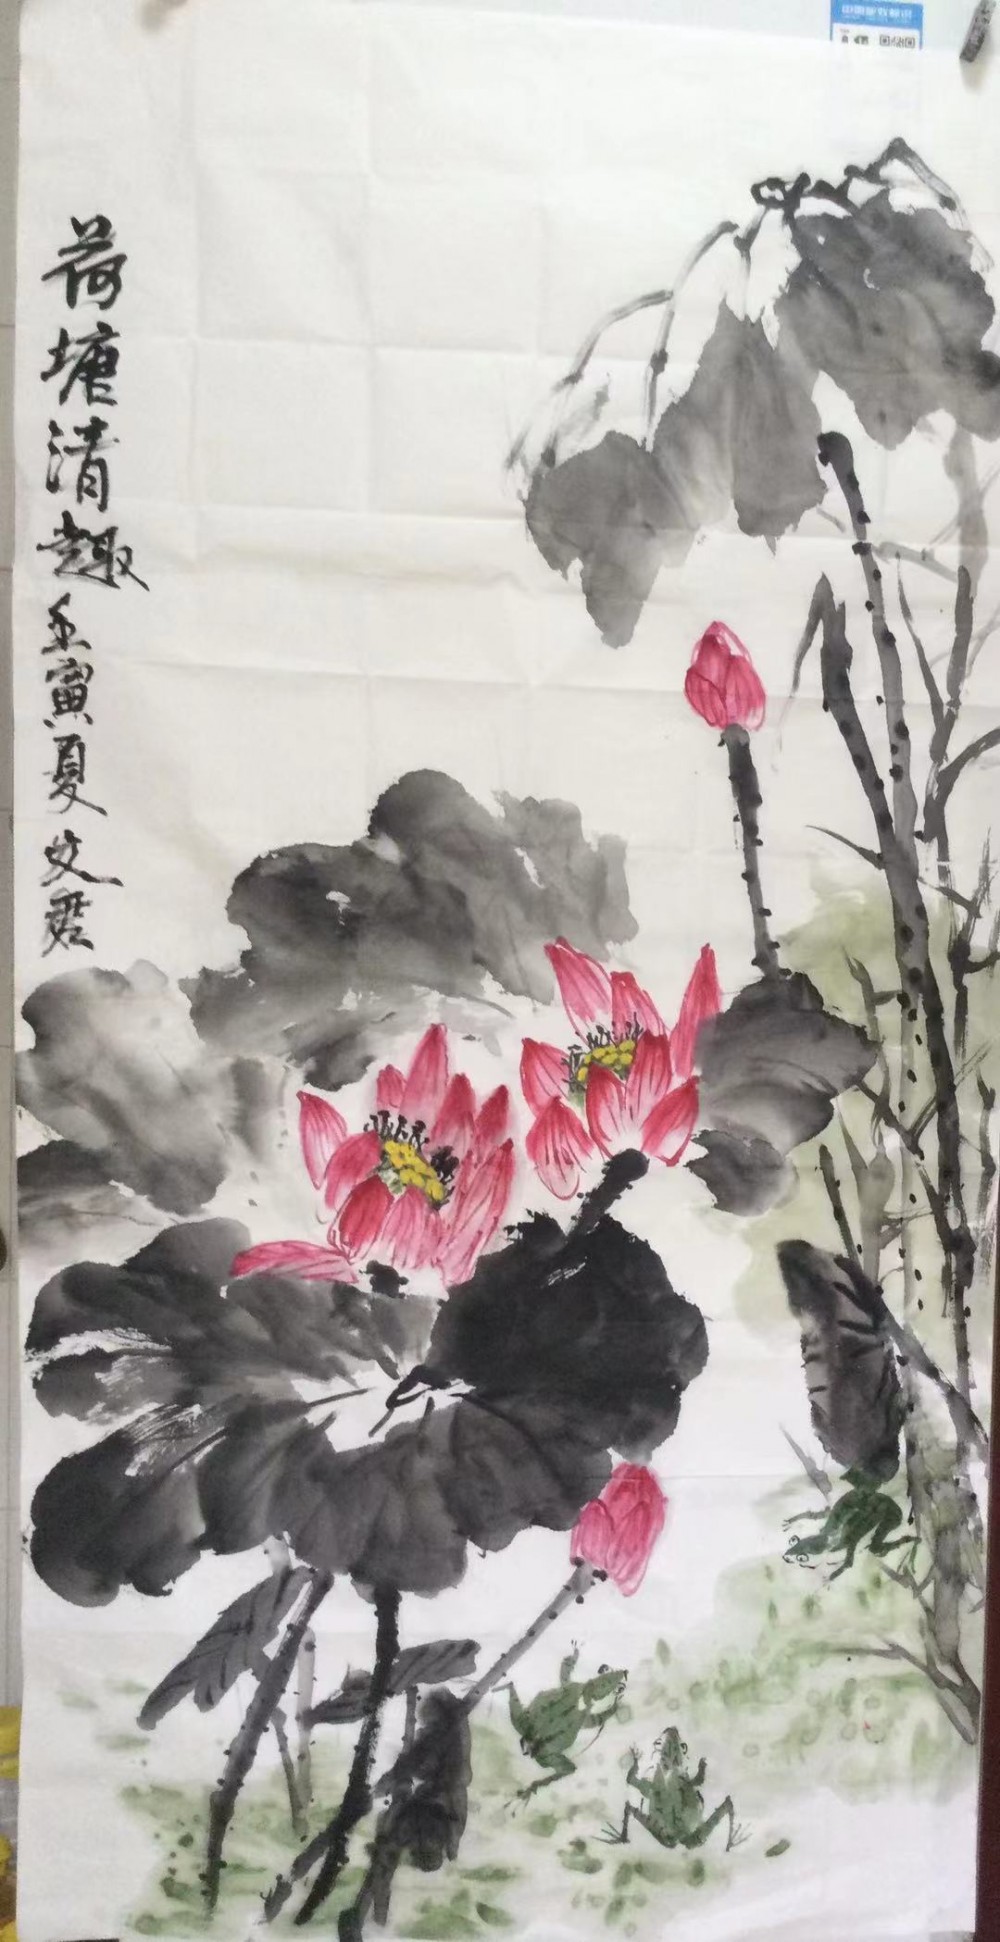 荷塘清趣
壬寅夏文君